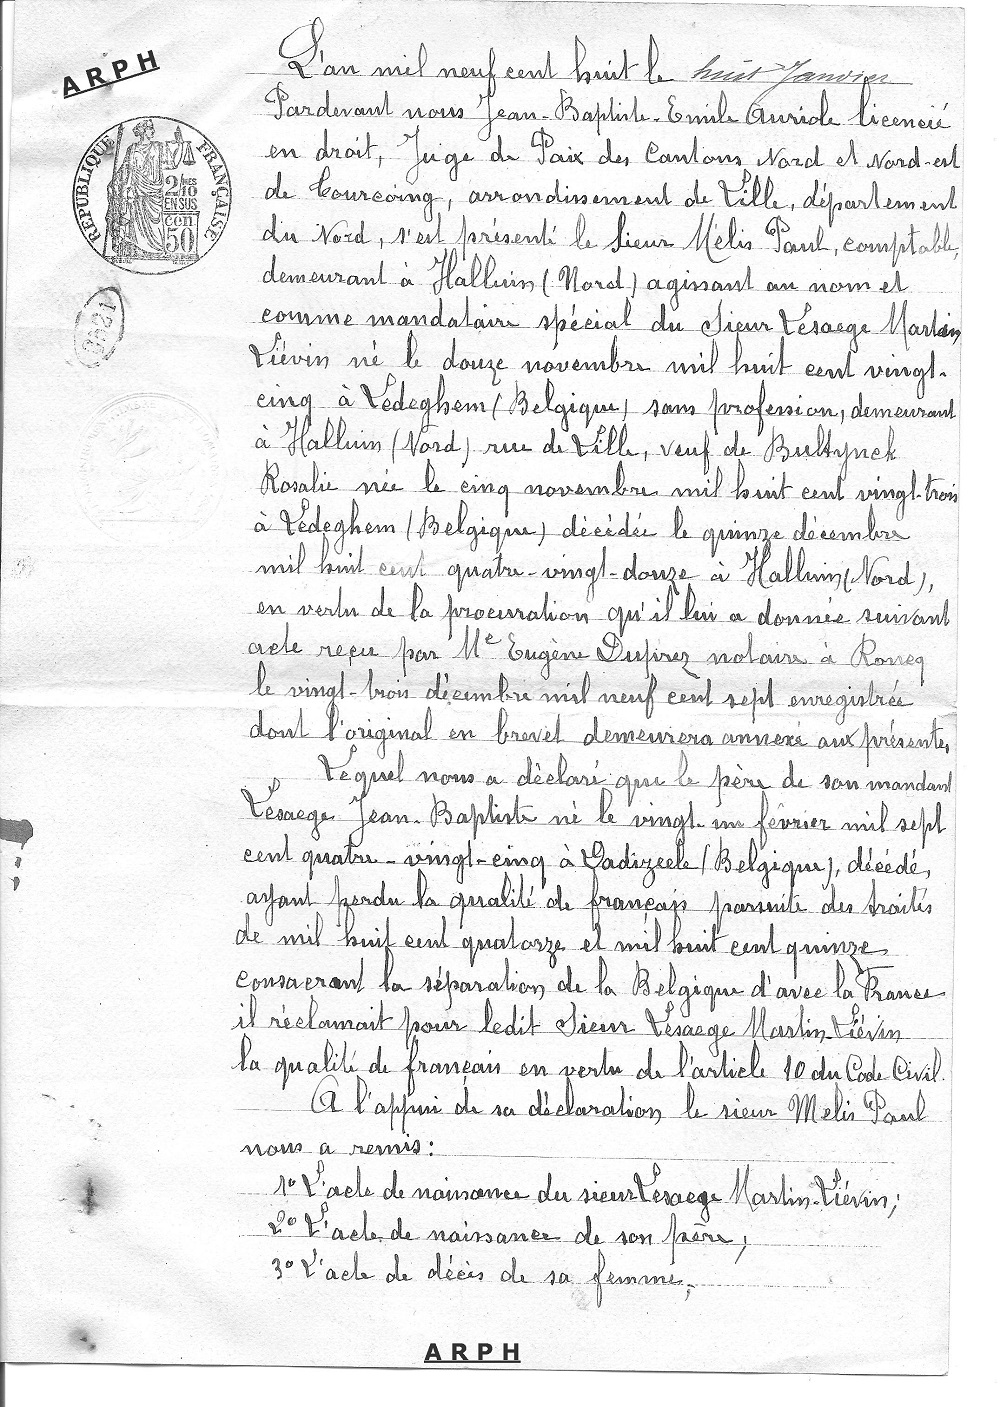 ARPH
L'an mil neuf cent huit le huit Janvier
Pardevant nous Jean-Baptiste-Emile Auriole licencié
en droit, Juge de Paix des Cantons Nord et Nord-est
de Tourcoing, arrondissement de Lille, département
du Nord, s'est présenté le sieur Mélis Paul, comptable,
demeurant à Halluin (Nord) agissant au nom et
comme mandataire spécial du sieur Lesaege Martin
Liévin né le douze novembre mil huit cent vingt-
cinq à Ledeghem (Belgique) sans profession, demeurant
à Halluin (Nord) rue de Lille, veuf de Bultynck
Rosalie née le cinq novembre mil huit cent vingt-trois
à Ledeghem (Belgique) décédée le quinze décembre
mil huit cent quatre-vingt-douze à Halluin (Nord),
en vertu de la procuration qu'il lui a donnée suivant
acte reçu par Me Eugène Dupirez notaire à Roncq
le vingt-trois décembre mil neuf cent sept enregistrée
dont l'original en brevet demeurera annexé aux présentes
Lequel nous a déclaré que le père de son mandant
Lesaege Jean-Baptiste né le vingt-un février mil sept
cent quatre-vingt-cinq à Cadizeele (Belgique), décédé,
ayant perdu la qualité de français parsuite des traités
de mil huit cent quatorze et mil huit cent quinze
consacrant la séparation de la Belgique d'avec la France
il réclamait pour ledit sieur Lesaege Martin-Liévin
la qualité de français en vertu de l'article 10 du Code Civil.
A l'appui de sa déclaration le sieur Melis Paul
nous a remis:
1° L'acte de naissance du sieur Lesaege Martin-Liévin;
2° L'acte de naissance de son père;
3° L'acte de décès de sa femme;
RÉPUBLIQUE FRANÇAISE
2/10 ES
EN SUS
50 CEN
ARPH